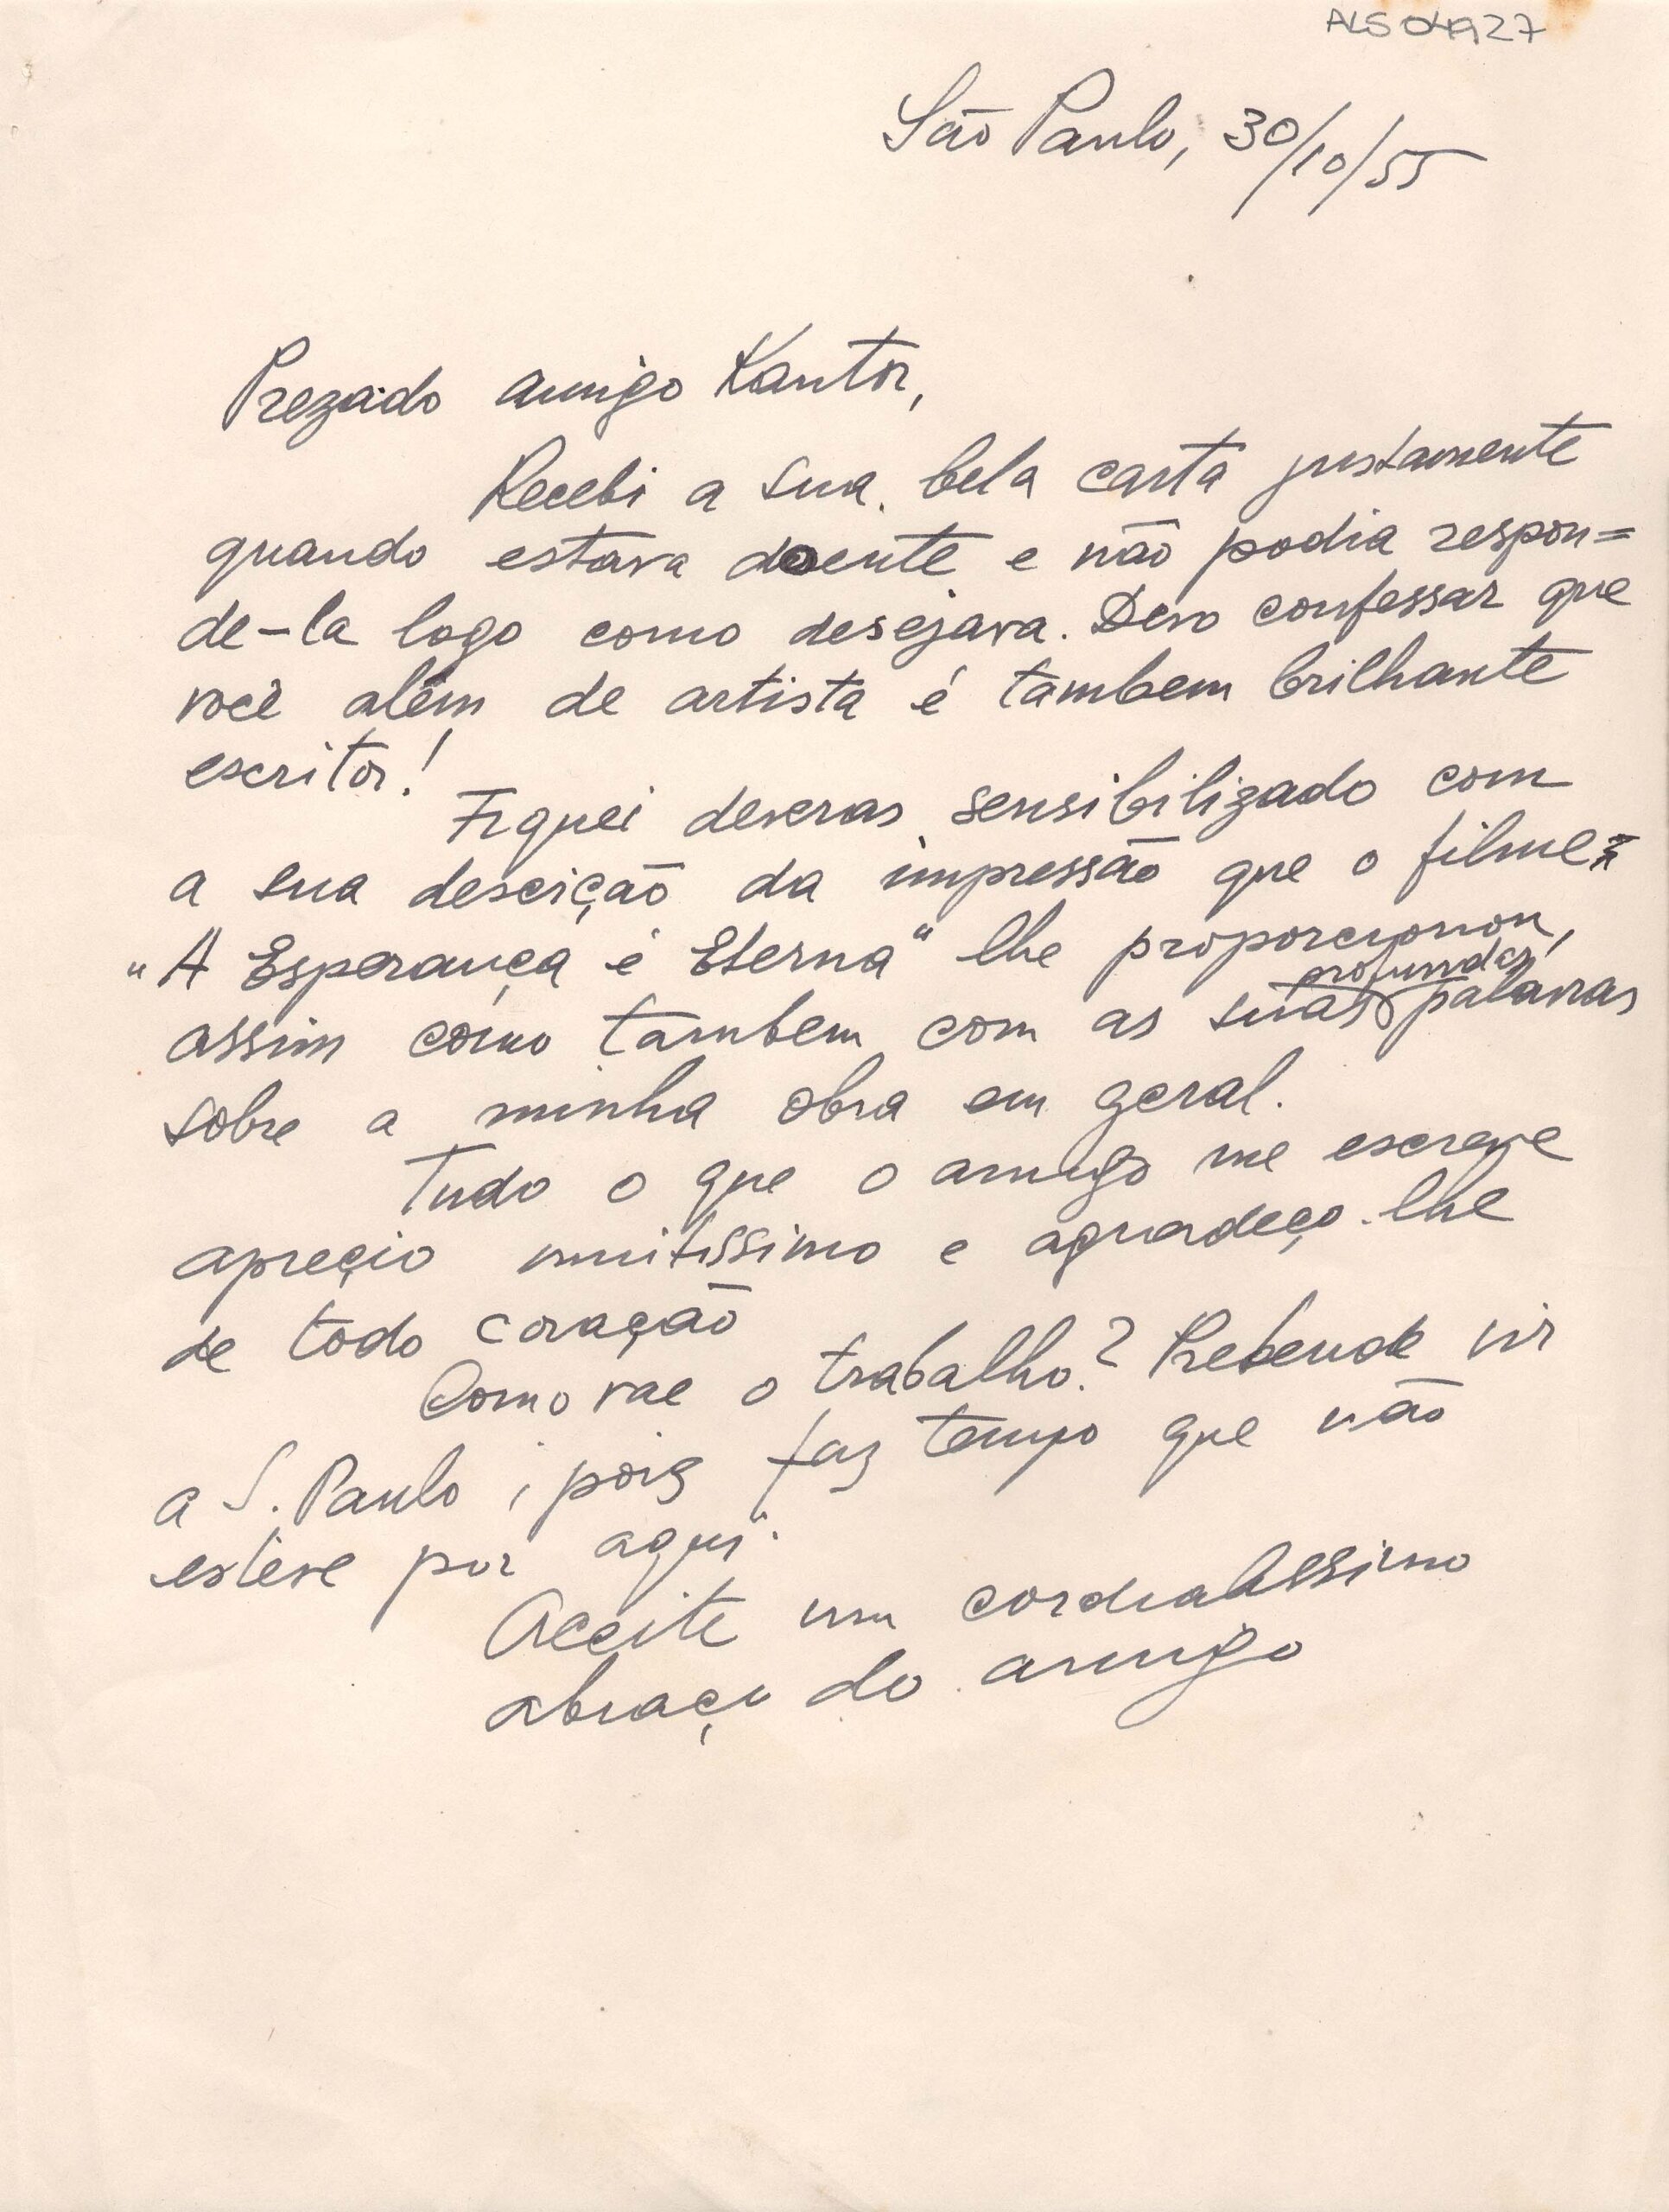 ALS 04927
São Paulo, 30/10/55
Prezado amigo Kantor,
Recebi a sua bela carta justamente
quando estava doente e não podia respon=
de-la logo como desejava. Devo confessar que
você além de artista é tambem brilhante
escritor!
Fiquei deveras sensibilizado com
a sua descição da impressão que o filme
"A Esperança é Eterna" lhe proporcionou,
profundas
assim como tambem com as suas palavras
sobre a minha obra em geral.
Tudo o que o amigo me escreve
apreçio muitissimo e agradeço-lhe
de todo coração
Como vae o trabalho? Pretende vir
a S. Paulo, pois faz tempo que não
esteve por aqui.
Aceite um cordialissimo
abraço do amigo